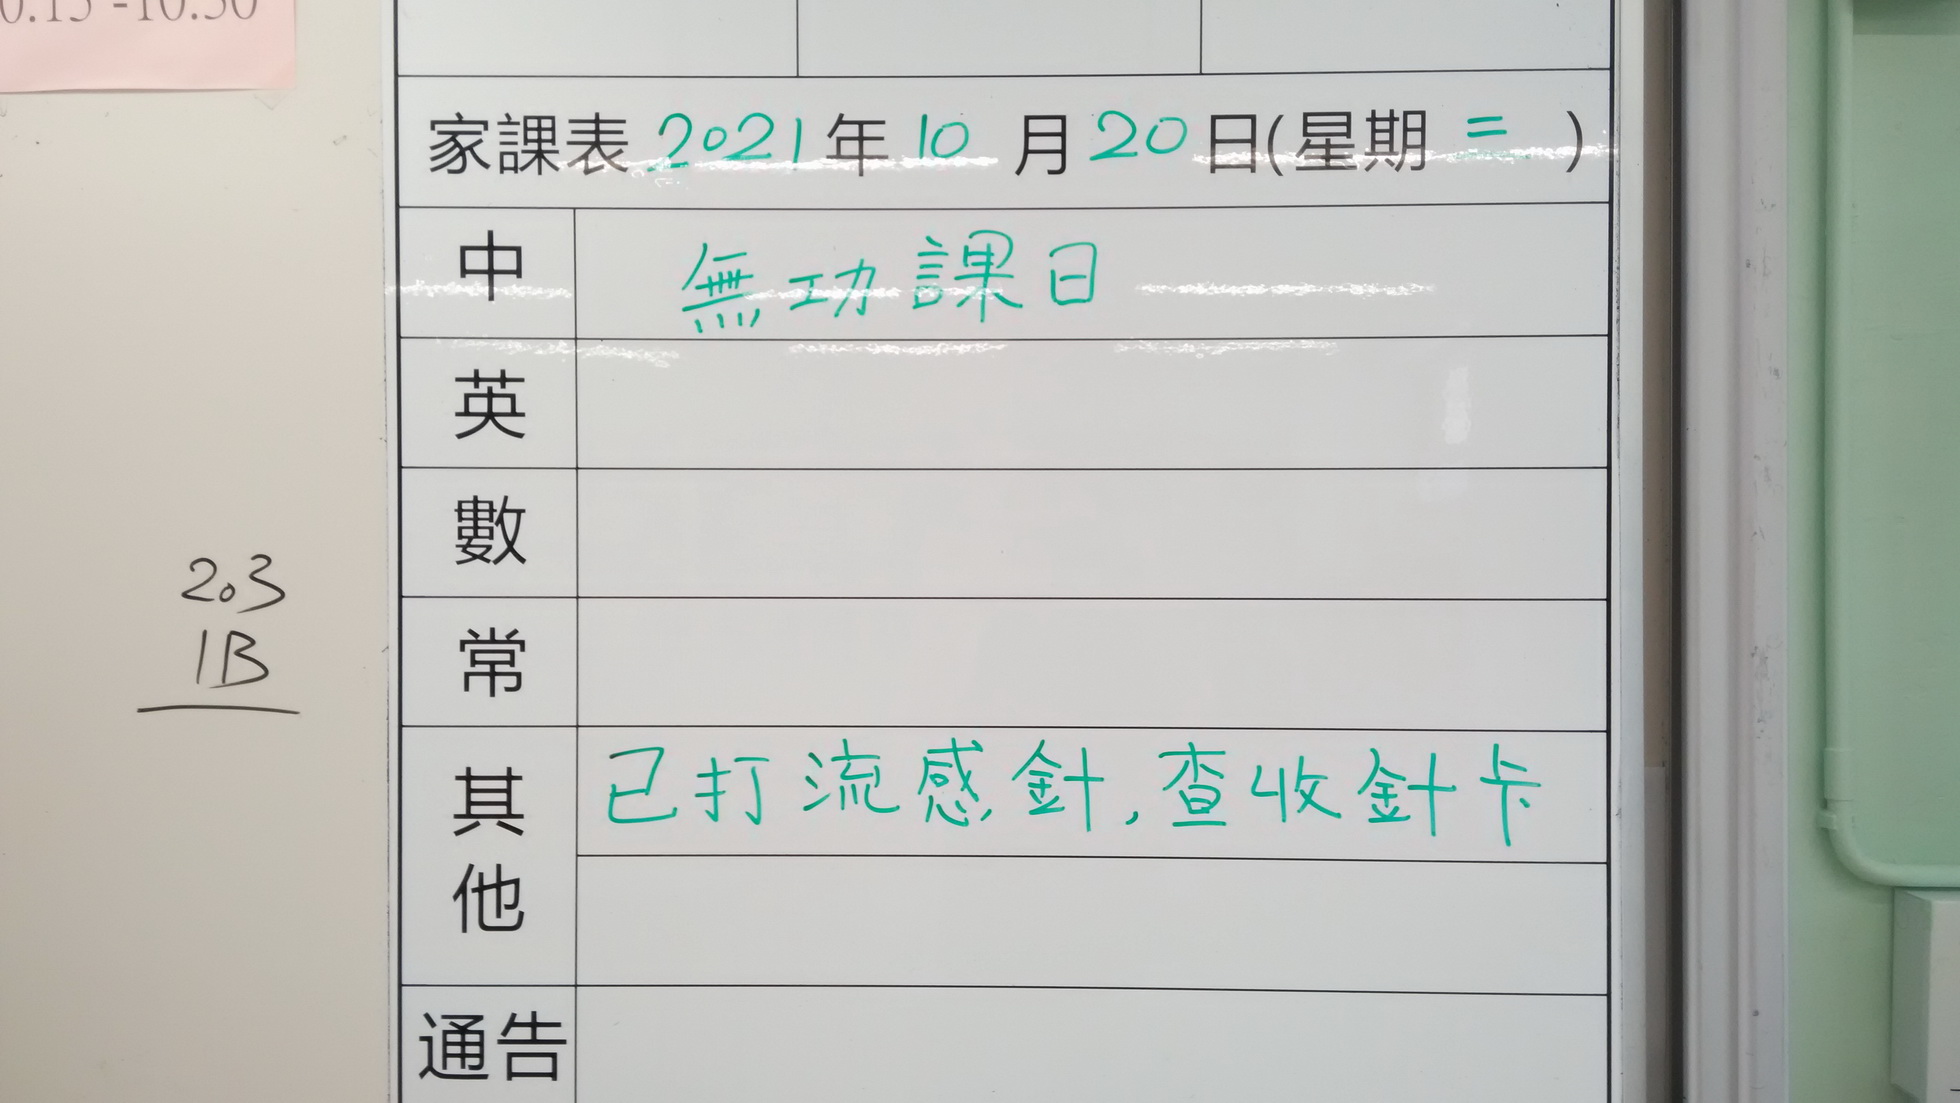 家課表 2021 年 10 月 20 日(星期 二 )
中 無功課日
英
數
常
其他 已打流感針,查收針卡
通告
203
1B